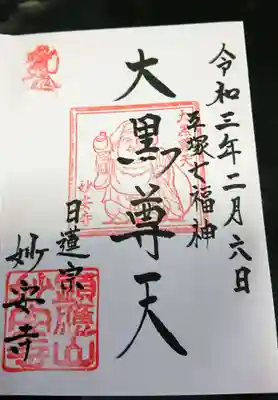 令和三年二月六日
平塚七福神
大黒尊天
大黒尊天
妙安寺
日蓮宗
妙安寺